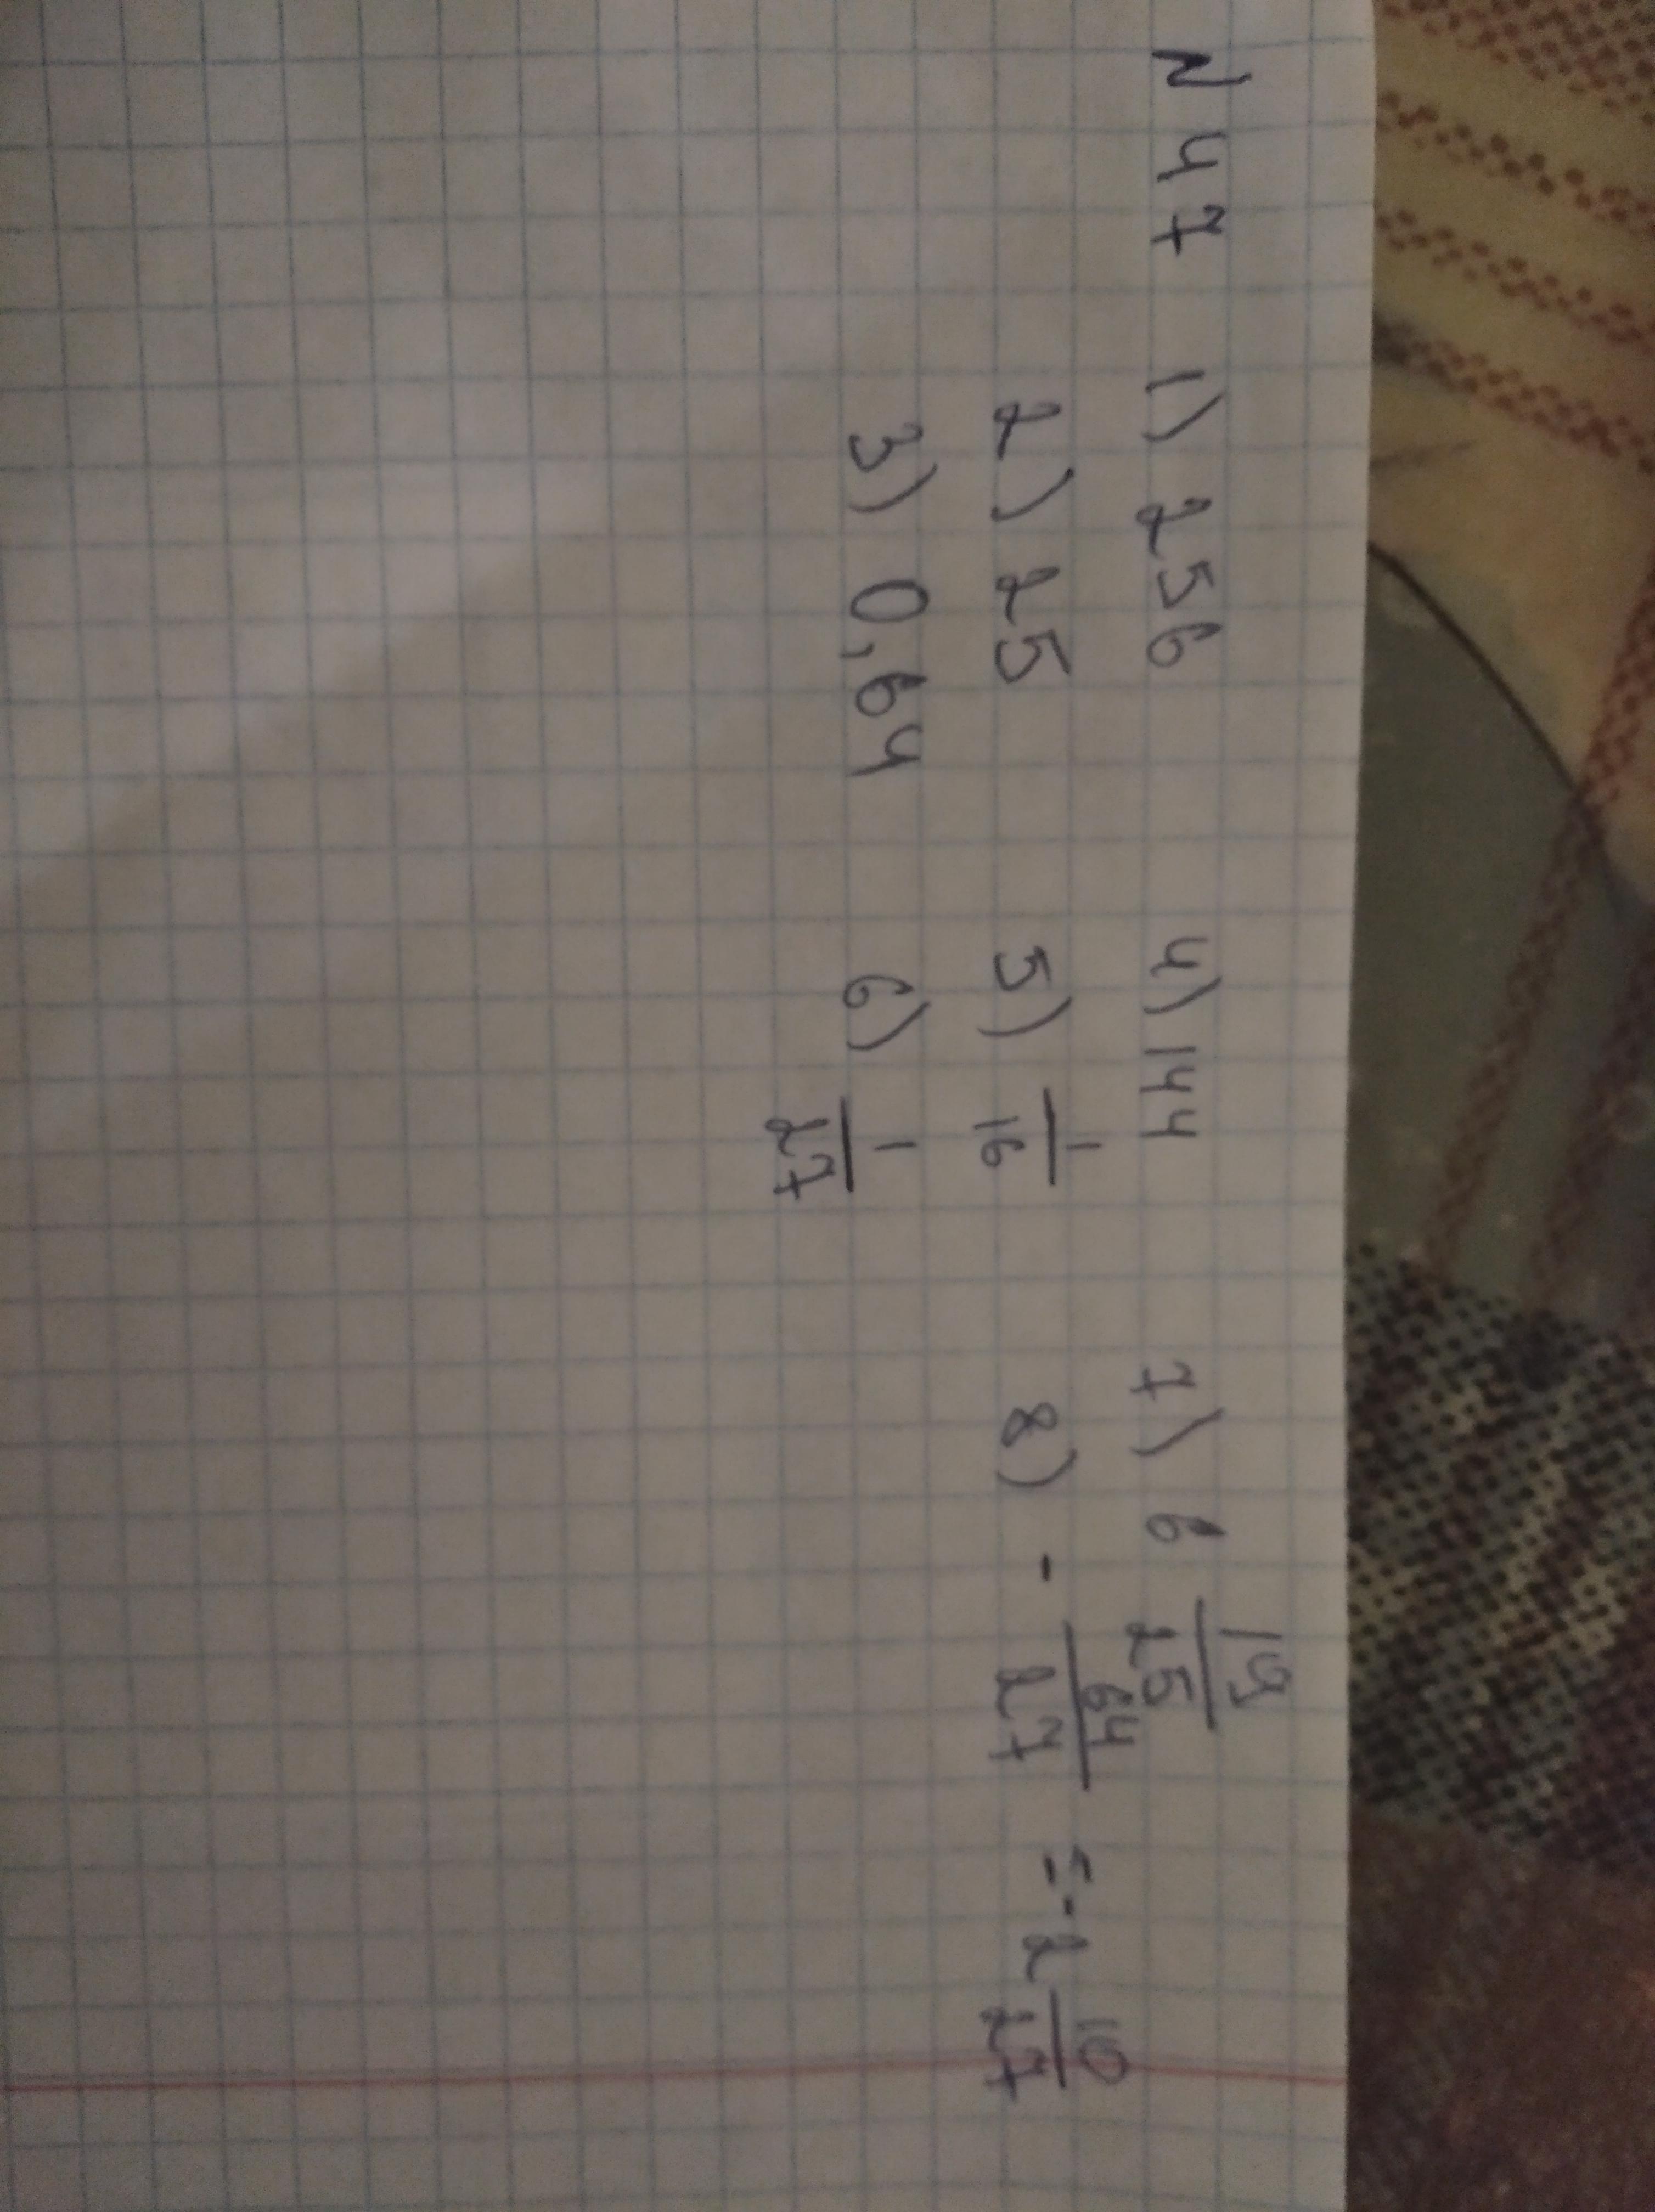 N 47 1) 256 4) 144 7) 6 19/25
2) 25 5) 1/16 8) - 64/27 = - 2 10/27
3) 0,64 6) 1/27